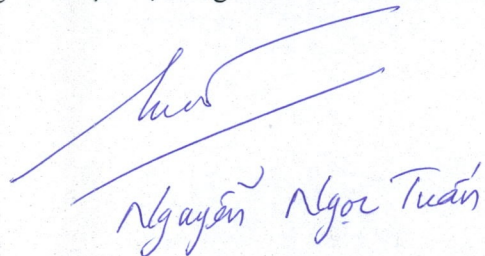 Nguyễn Ngọc Tuấn